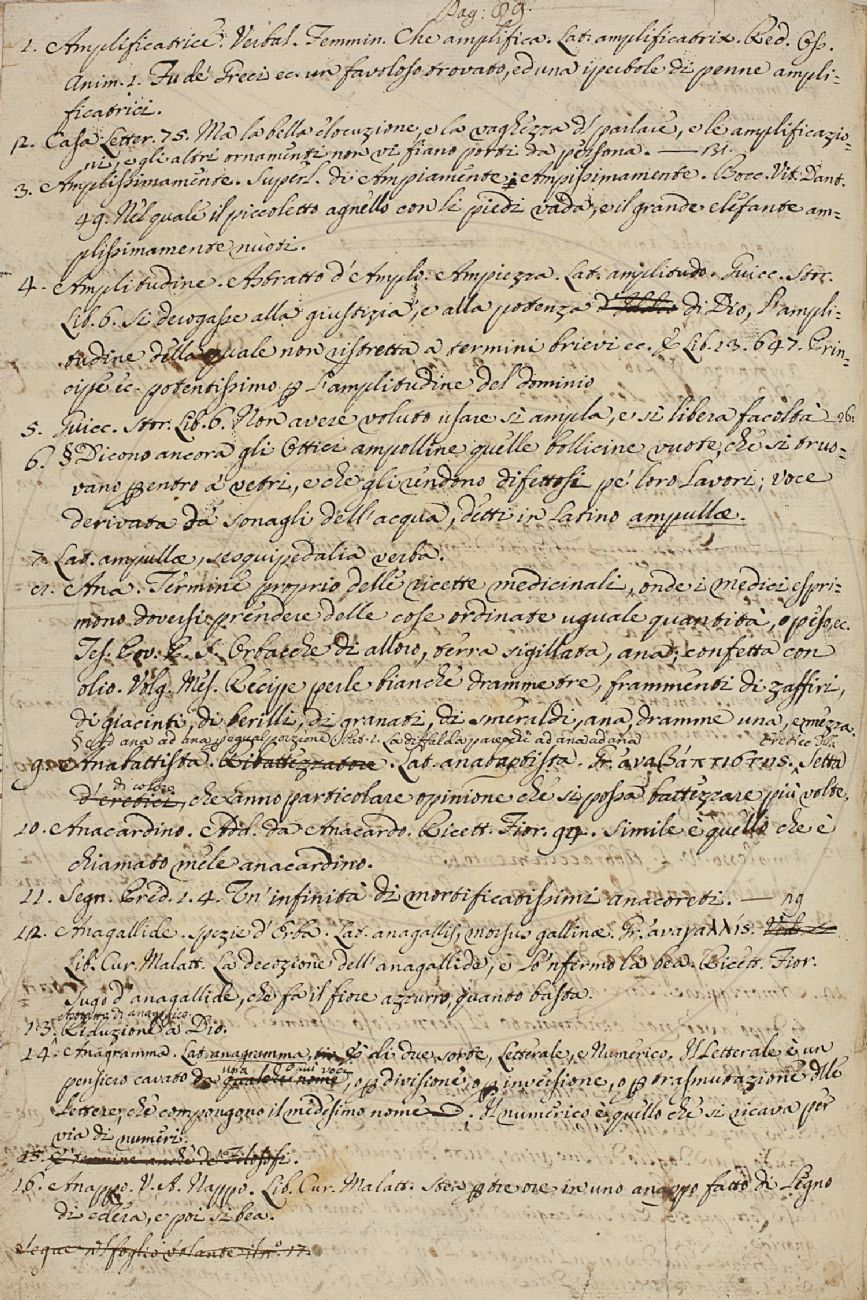 Pag: 89.
1. Amplificatrice. Verbal. Femmin. Che amplifica. Lat. amplificatrix. Red. Oss.
Anim. 1. Fu de' Greci ec. un favoloso trovato, ed una iperbole di penne ampli-
ficatrici.
2. Casa Letter. 75. Ma la bella elocuzione, e la vaghezza di parlare, e le amplificazio-
ni, e gli altri ornamenti non vi siano porti da persona. — 131.
3. Amplissimamente. Superl. di Ampiamente; Ampissimamente. Bocc. Vit. Dant.
49. Nel quale il piccoletto agnello con li piedi vada, e il grande elefante am-
plissimamente nuoti.
4. Amplitudine. Astratto d'Amplo. Ampiezza. Lat. amplitudo. Guicc. Stor.
Lib. 6. Si derogasse alla giustizia, e alla potenza di Dio, l'ampli-
tudine della quale non ristretta a termini brievi ec. E Lib. 13. 647. Prin-
cipe ec. potentissimo p l'amplitudine del dominio
5. Guicc. Stor. Lib. 6. Non avere voluto usare sì ampla, e sì libera facoltà 26.
6. § Dicono ancora gli Ottici ampolline quelle bollicine vuote, che si truo-
vano p entro a' vetri, e che gli rendono difettosi pe' loro lavori; voce
derivata da' sonagli dell'acqua, detti in Latino ampullæ.
7. Lat. ampullæ, sesquipedalia verba.
8. Ana. Termine proprio delle ricette medicinali, onde i medici espri-
mono doversi prendere delle cose ordinate uguale quantità, o peso, ec.
Tes. Pov. P. S. Orbacche di alloro, terra sigillata, ana, confetta con
olio. Volg. Mes. Recipe perle bianche dramme tre, frammenti di zaffiri,
di giacinti, di berilli, di granati, di smeraldi, ana dramme una, e mezza.
9. Anabattista. Ribattezzatore. Lat. anabaptista. Gr. ἀναβάπτιστής. Setta
di coloro
d'eretici, che hanno particolare opinione che si possa battezzare più volte.
10. Anacardino. Add. da Anacardo. Ricett. Fior. 94. Simile è quello che è
chiamato mele anacardino.
11. Segn. Pred. 1. 4. Un'infinità di mortificatissimi anacoreti. — 29
12. Anagallide. Spezie d'Erba. Lat. anagallis, morsus gallinæ. Gr. ἀναγαλλίς.
Lib. Cur. Malatt. La decozione dell'anagallide, e lo 'nfermo la bea. Ricett. Fior.
Sugo d'anagallide, che fa il fiore azzurro, quanto basta.
Astratto di anagogico.
13. Riduzione a Dio.
14. Anagramma. Lat. anagramma, È di due sorte, Letterale, e Numerico. Il Letterale è un
una o più voci
pensiero cavato da qualche nome, o p divisione, o p inversione, o p trasmutazione delle
lettere, che compongono il medesimo nome. Il numerico è quello che si ricava per
via di numeri.
15. È termine anche de' Filosofi.
16. Anappo. V. A. Nappo. Lib. Cur. Malatt. Stea p tre ore in uno anappo fatto di legno
di edera, e poi si bea.
Segue nel foglio volante il n.º 17.